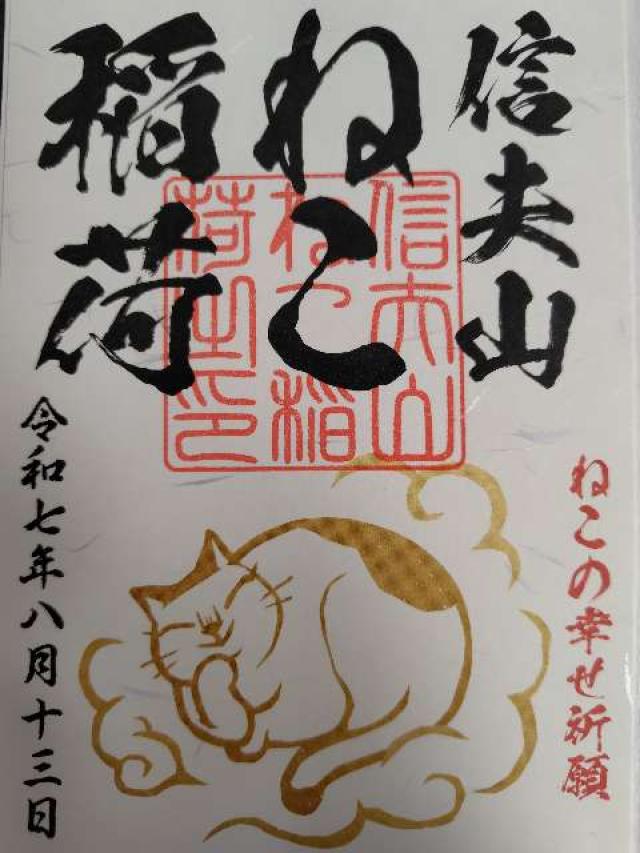 信夫山
ねこ
稲荷
信夫山
ねこ稲
荷之印
ねこの幸せ祈願
令和七年八月十三日